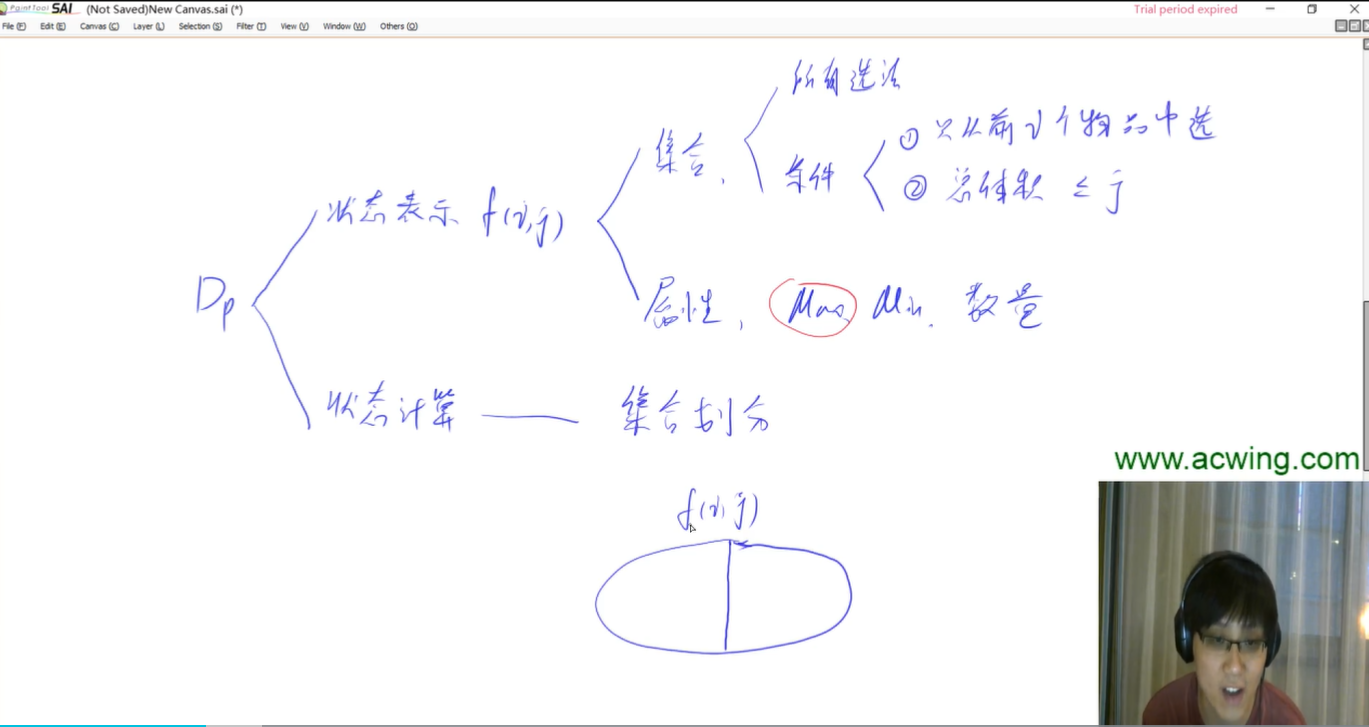 PaintTool SAI (Not Saved)New Canvas.sai (*) Trial period expired
File (F) Edit (E) Canvas (C) Layer (L) Selection (S) Filter (T) View (V) Window (W) Others (O)
所有选法
集合、
条件
① 只从前i个物品中选
② 总体积 ≤ j
状态表示 f(i,j)
Dp
属性、 Max Min、 数量
状态计算 —— 集合划分
www.acwing.com
f(i,j)